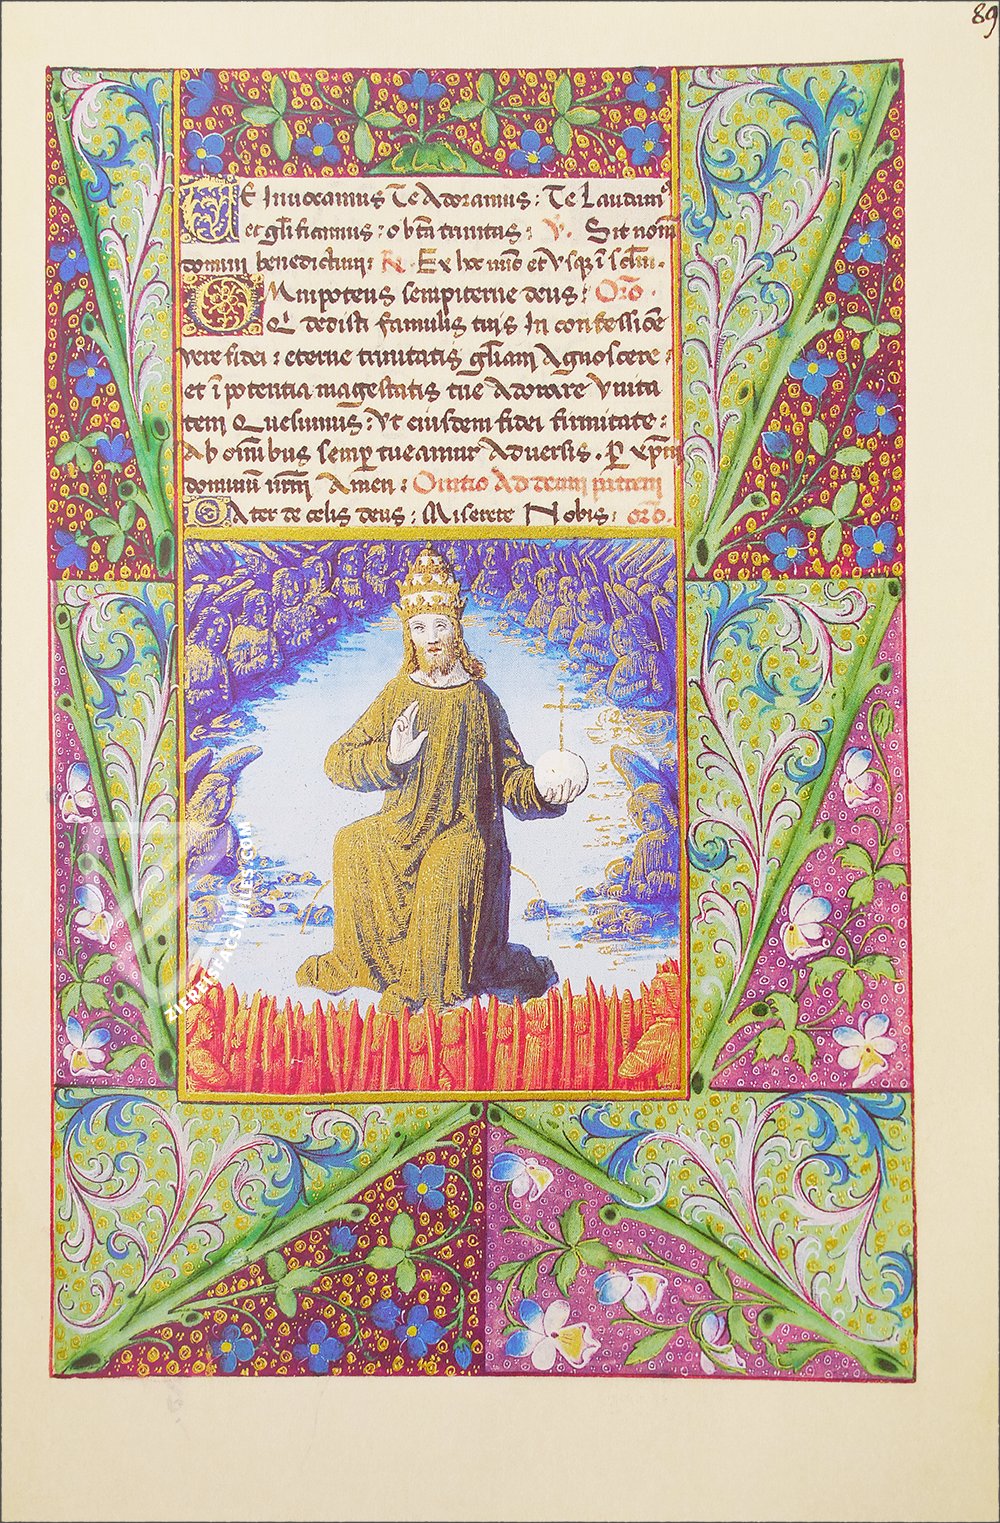 89
TE Inuocamus Te Adoramus: Te Laudam⁹
et glificamus: o bta trinitas: V. Sit nom
domini benedictum: R. Ex hoc nūc et Vsqꝫ ī sclm.
OMnipotens sempiterne deus: Oro.
Q dedisti famulis tuis In confessiōe
vere fidei: eterne trinitatis gliam Agnoscere:
et ī potentia magestatis tue Adorare Vnita
tem Quesumus: Vt eiusdem fidei firmitate:
Ab omībus semp tueamur Aduersis. P xpm
dominū nrm Amen: Oratio Ad deum patrem
PAter de celis deus: Miserere Nobis: oro.
ZIEREISFACSIMILES.COM